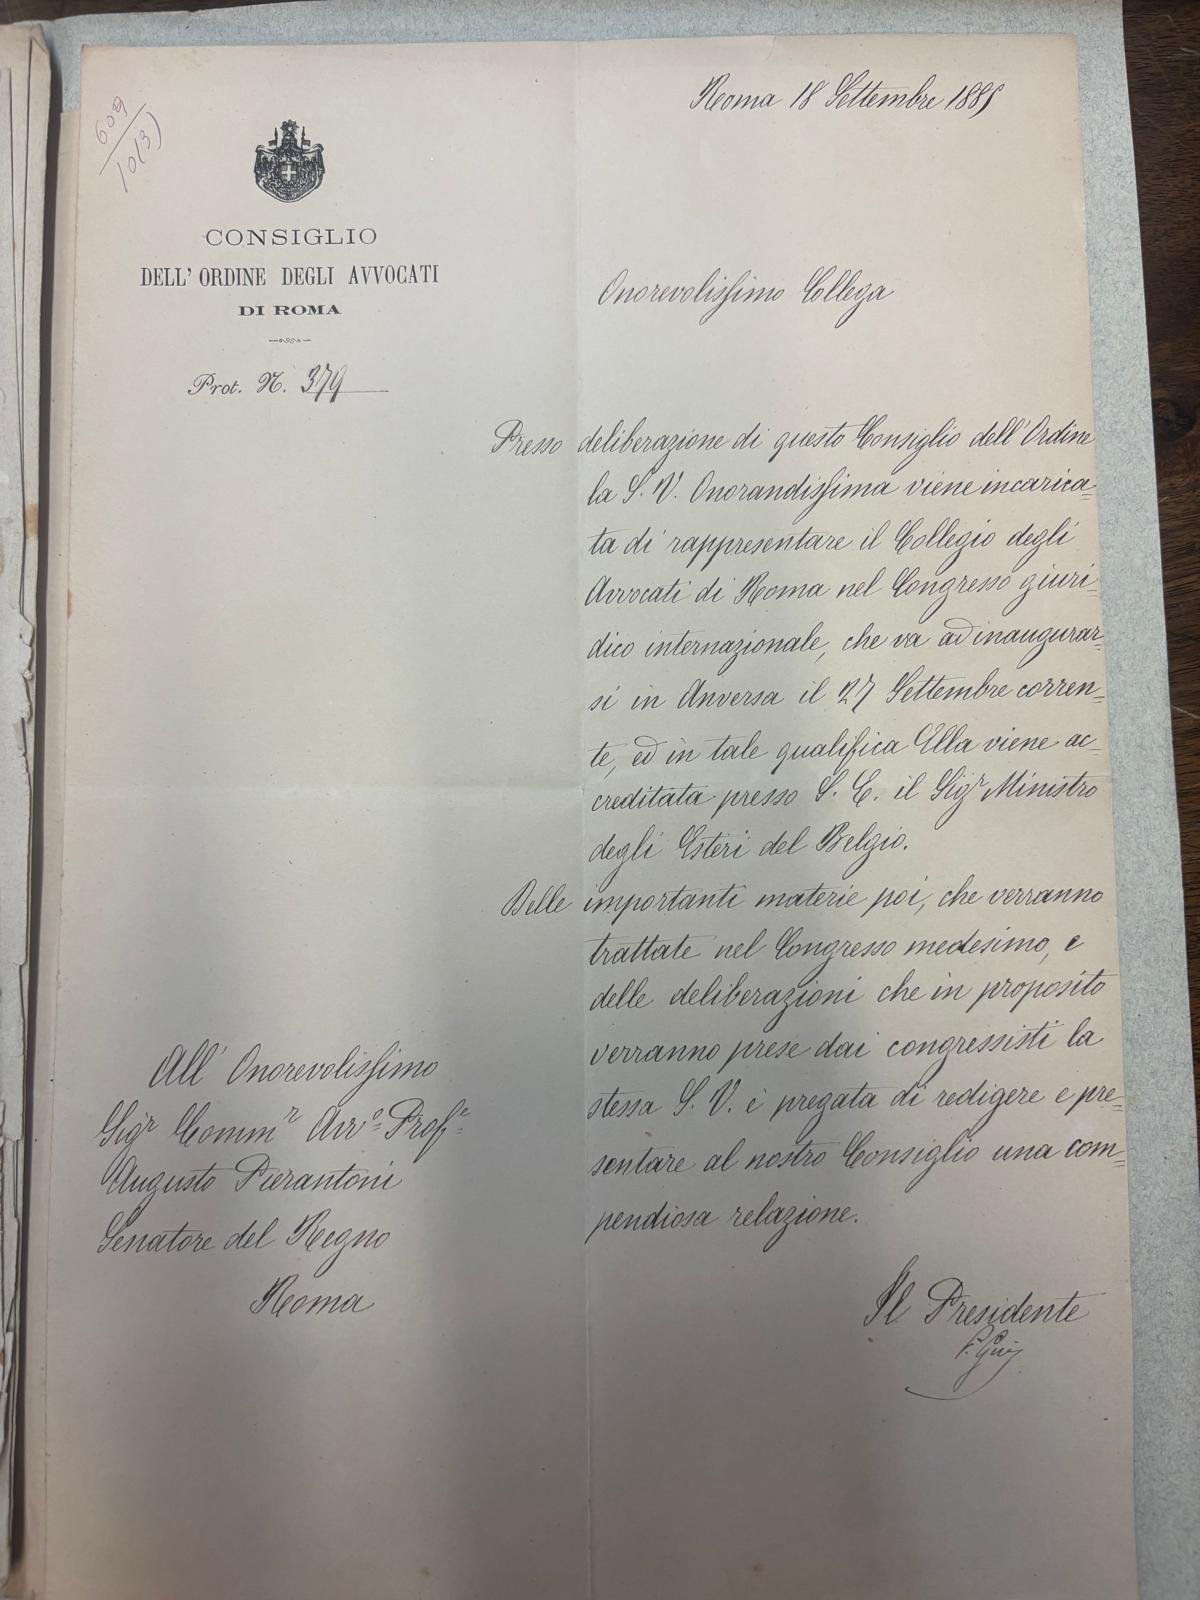 609
10(3)
Roma 18 Settembre 1885
CONSIGLIO
DELL' ORDINE DEGLI AVVOCATI
DI ROMA
Prot. N. 379
Onorevolissimo Collega
Presso deliberazione di questo Consiglio dell'Ordine
la S. V. Onorandissima viene incarica=
ta di rappresentare il Collegio degli
Avvocati di Roma nel Congresso giuri=
dico internazionale, che va ad inaugurar=
si in Anversa il 27 Settembre corren=
te, ed in tale qualifica Ella viene ac=
creditata presso S. E. il Sigr Ministro
degli Esteri del Belgio.
Delle importanti materie poi, che verranno
trattate nel Congresso medesimo, e
delle deliberazioni che in proposito
verranno prese dai congressisti la
stessa S. V. è pregata di redigere e pre=
sentare al nostro Consiglio una com=
pendiosa relazione.
Il Presidente
All' Onorevolissimo
Sigr Commr Avvo Profe
Augusto Pierantoni
Senatore del Regno
Roma